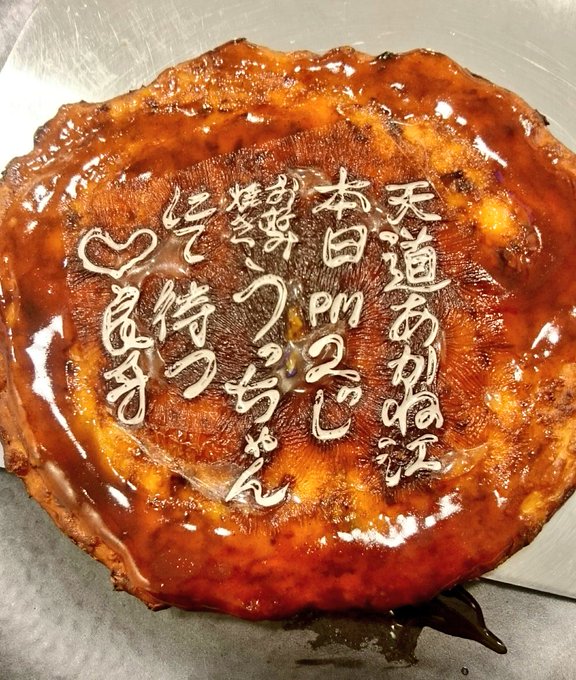 天道あかね江
本日PM2じ
お好み焼きうっちゃん
にて待つ
♡良牙